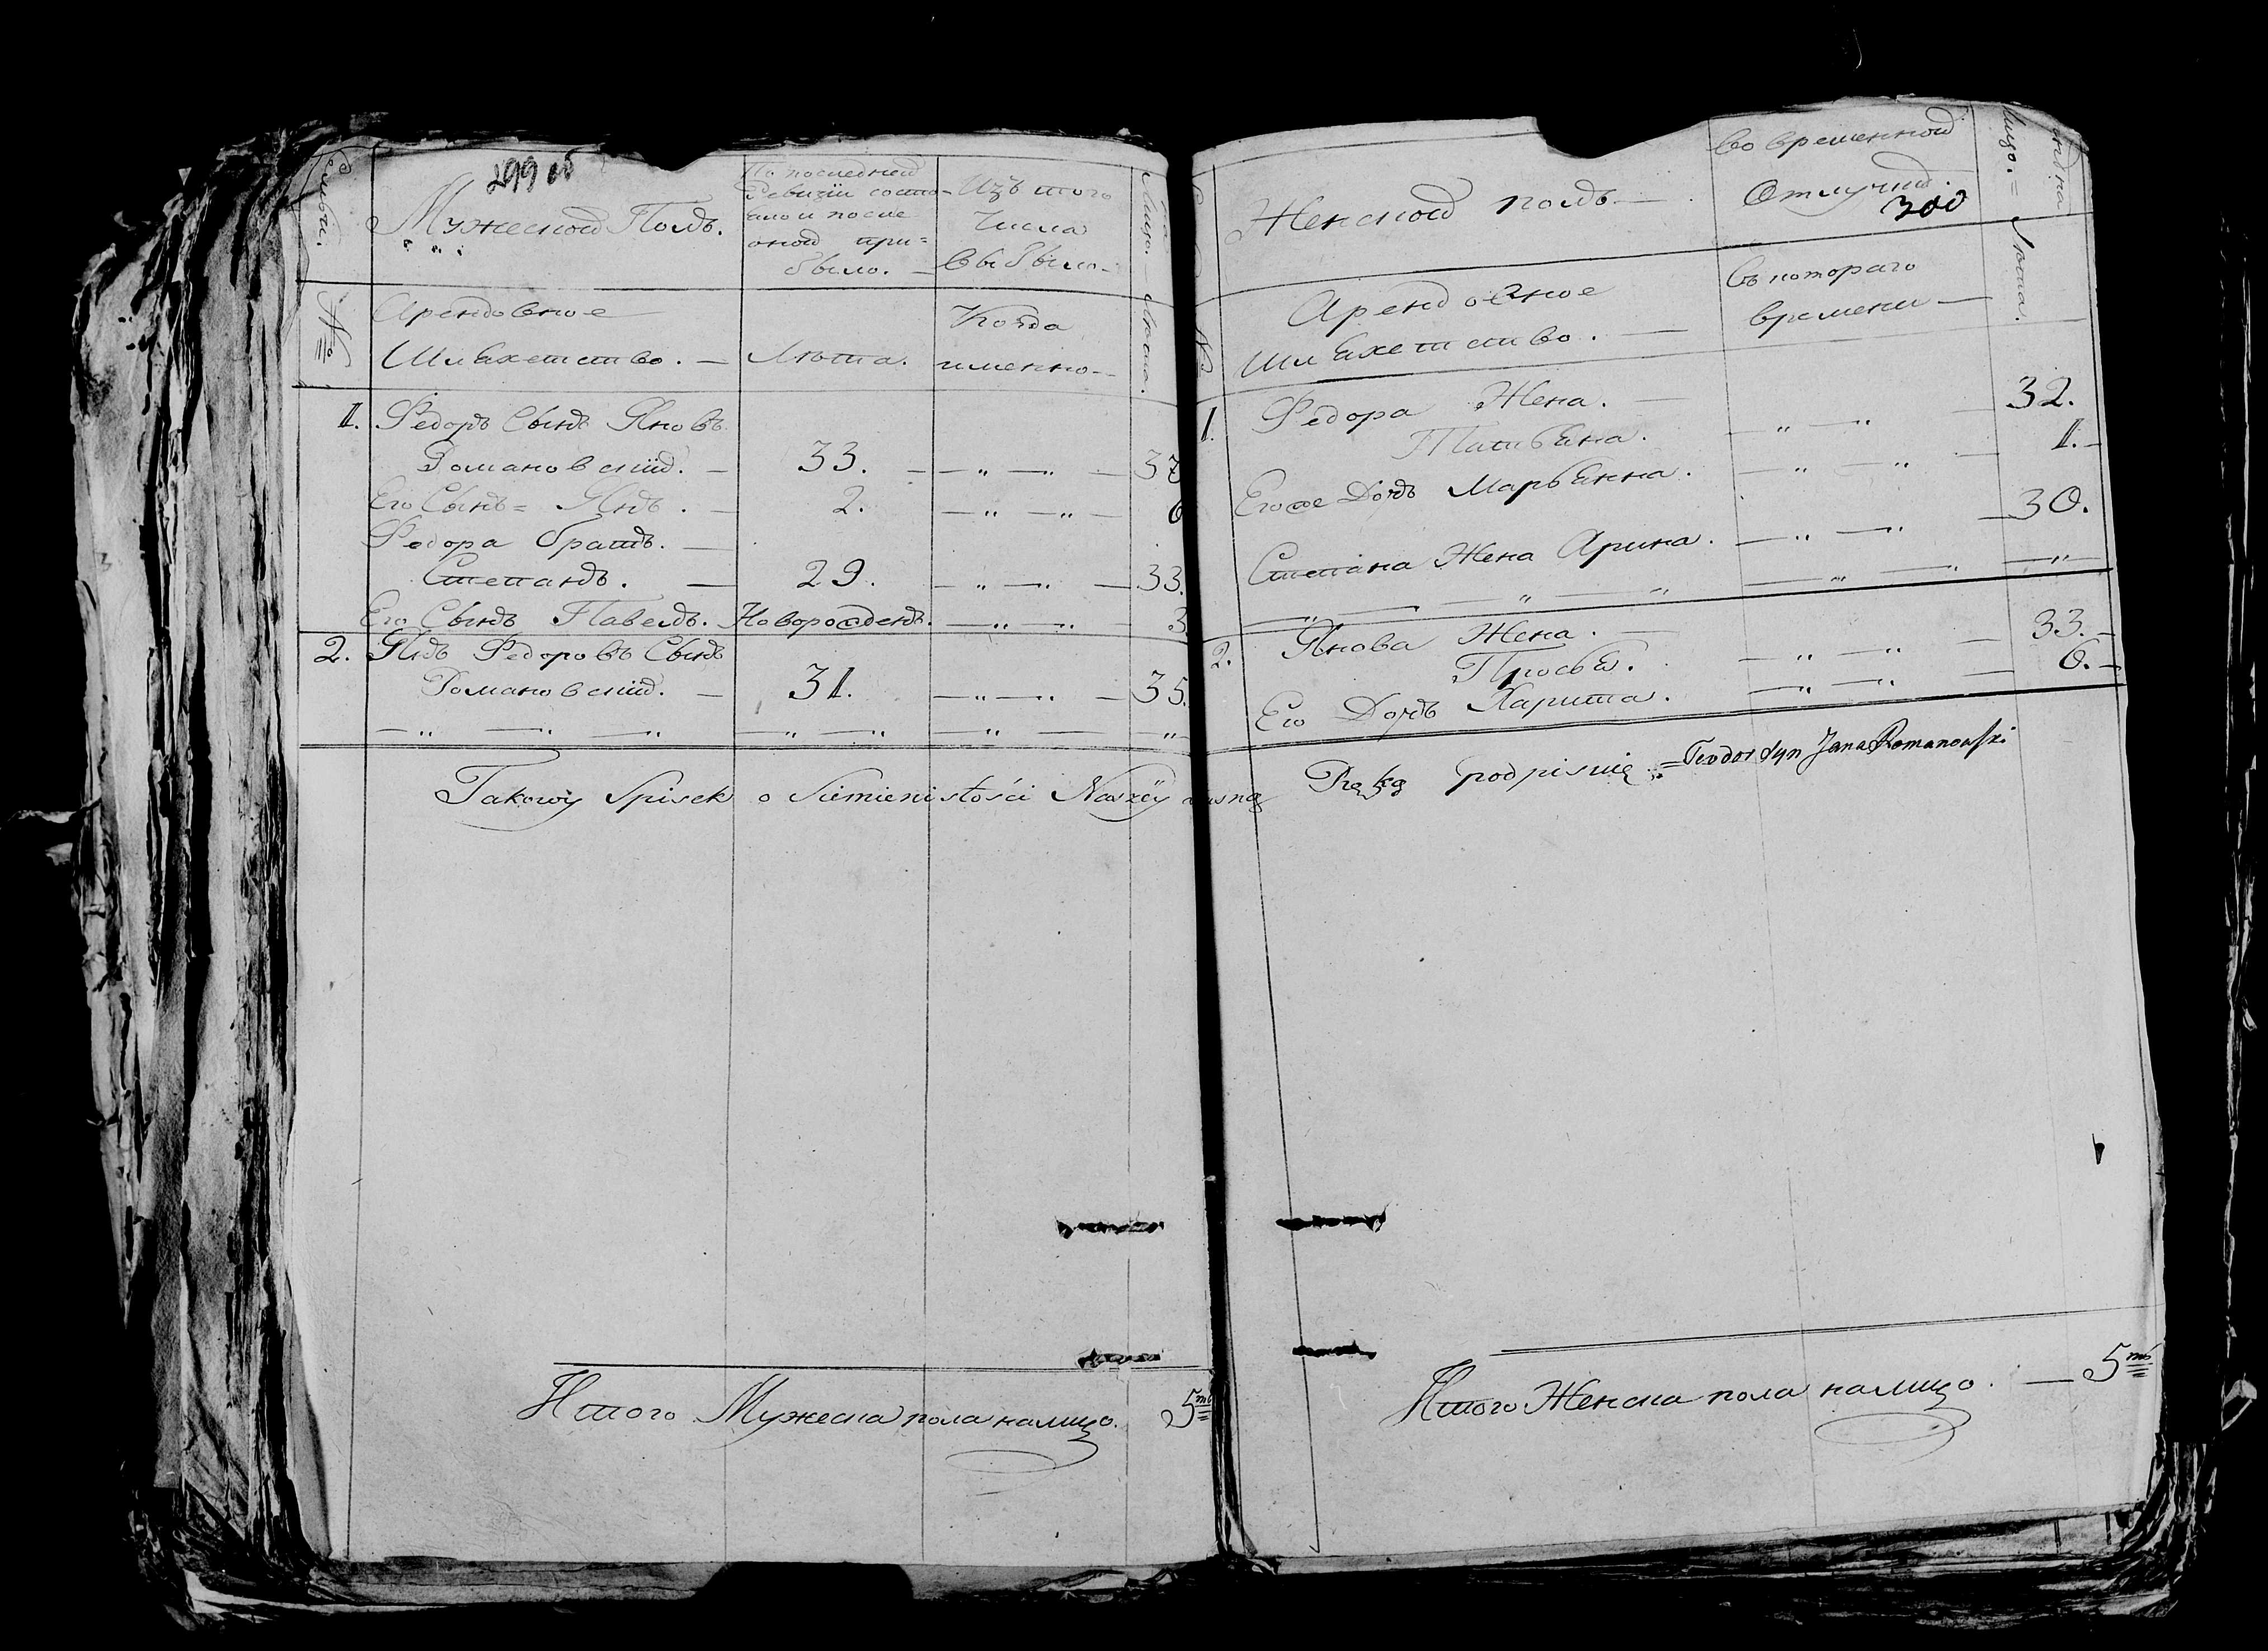 299 об
Семьи.
Мужеской Полъ.
По последней
Ревизіи состо-
яло и после
оной при=
было. —
Изъ того
Числа
выбыло.
Лицо. — Лѣта.
№
Арендовное
Шляхетство. —
Лѣта.
Когда
именно —
1. Федоръ Сынъ Яновъ
Романовскій. — 33. — — „ — „ — 37
Его Сынъ = Янъ. — 2. — „ — „ — 6
Федора братъ. —
Степанъ. — 29. — „ — „ — 33.
Его Сынъ Павелъ. Новорожденъ. — „ — „ 3.
2. Янъ Федоровъ Сынъ
Романовскій. — 31. — „ — „ — 35.
— „ — „ — „ — „ — „ — „ — „
Takowÿ Spisek o Familii stości Naszëy
Итого Мужеска пола налицо. 5ть
Женской полъ — .
Во временной
Отлучки.
300
Лицо. = Лѣта.
№
Арендовное
Шляхетство. —
Съ котораго
времени —
1. Федора Жена. —
Татьяна. — „ — „ — 32.
Его же Дочь Марьянна. — „ — „ — 1. —
Степана Жена Арина. — „ — „ — 30.
„ — „ — „ — „ — „ — „
2. Янова Жена. —
Просья. — „ — „ — 33. —
Его Дочь Харита. — „ — „ — 6. —
Ręką podpisuię = Teodor Syn Jana Romanowski
Итого Женска пола налицо. — 5ть